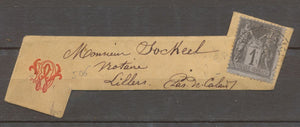 Monsieur Sockeel
Notaire
Lillers (Pas de Calais)
1